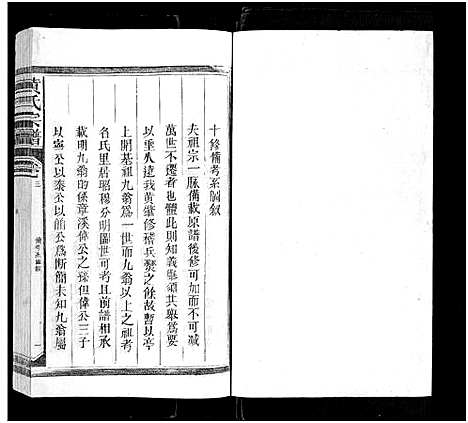 十修備考系詞敘
夫祖宗一脉備載原譜後修可加而不可減
萬世不遷者也體此則知義舉領共舉爲要
以垂久遠我黃繼修稽兵燹之餘故暫以亭
上開基祖九翁爲一世而九翁以上之祖考
名氏里居昭穆分明圖世可考前譜相承
載明九翁的係章溪偉公之孫但偉公三子
以寧公以泰公以節公爲斷簡未知九翁屬
黃氏宗譜
卷三
一